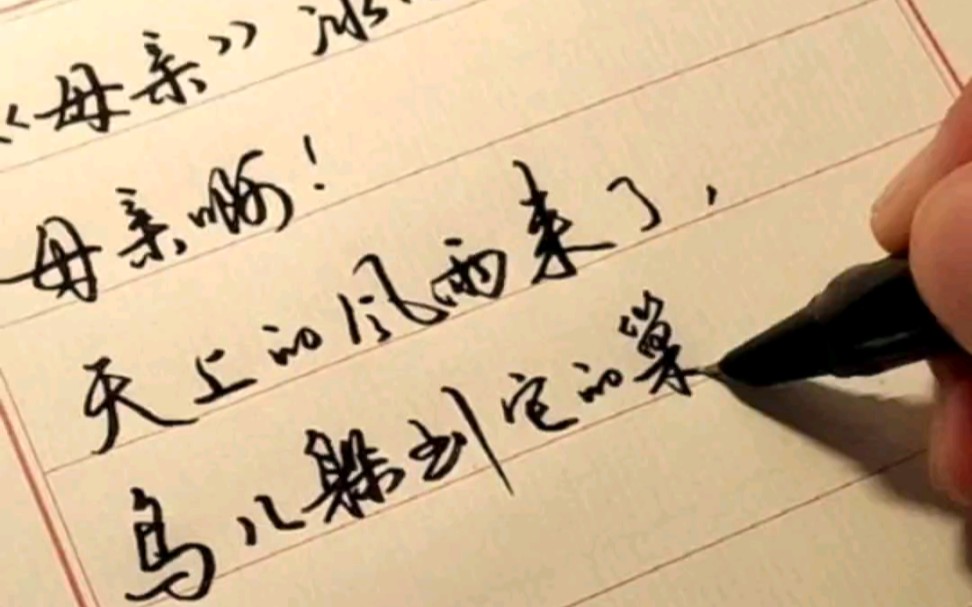 《母亲》冰
母亲啊！
天上的风雨来了，
鸟儿躲到它的巢